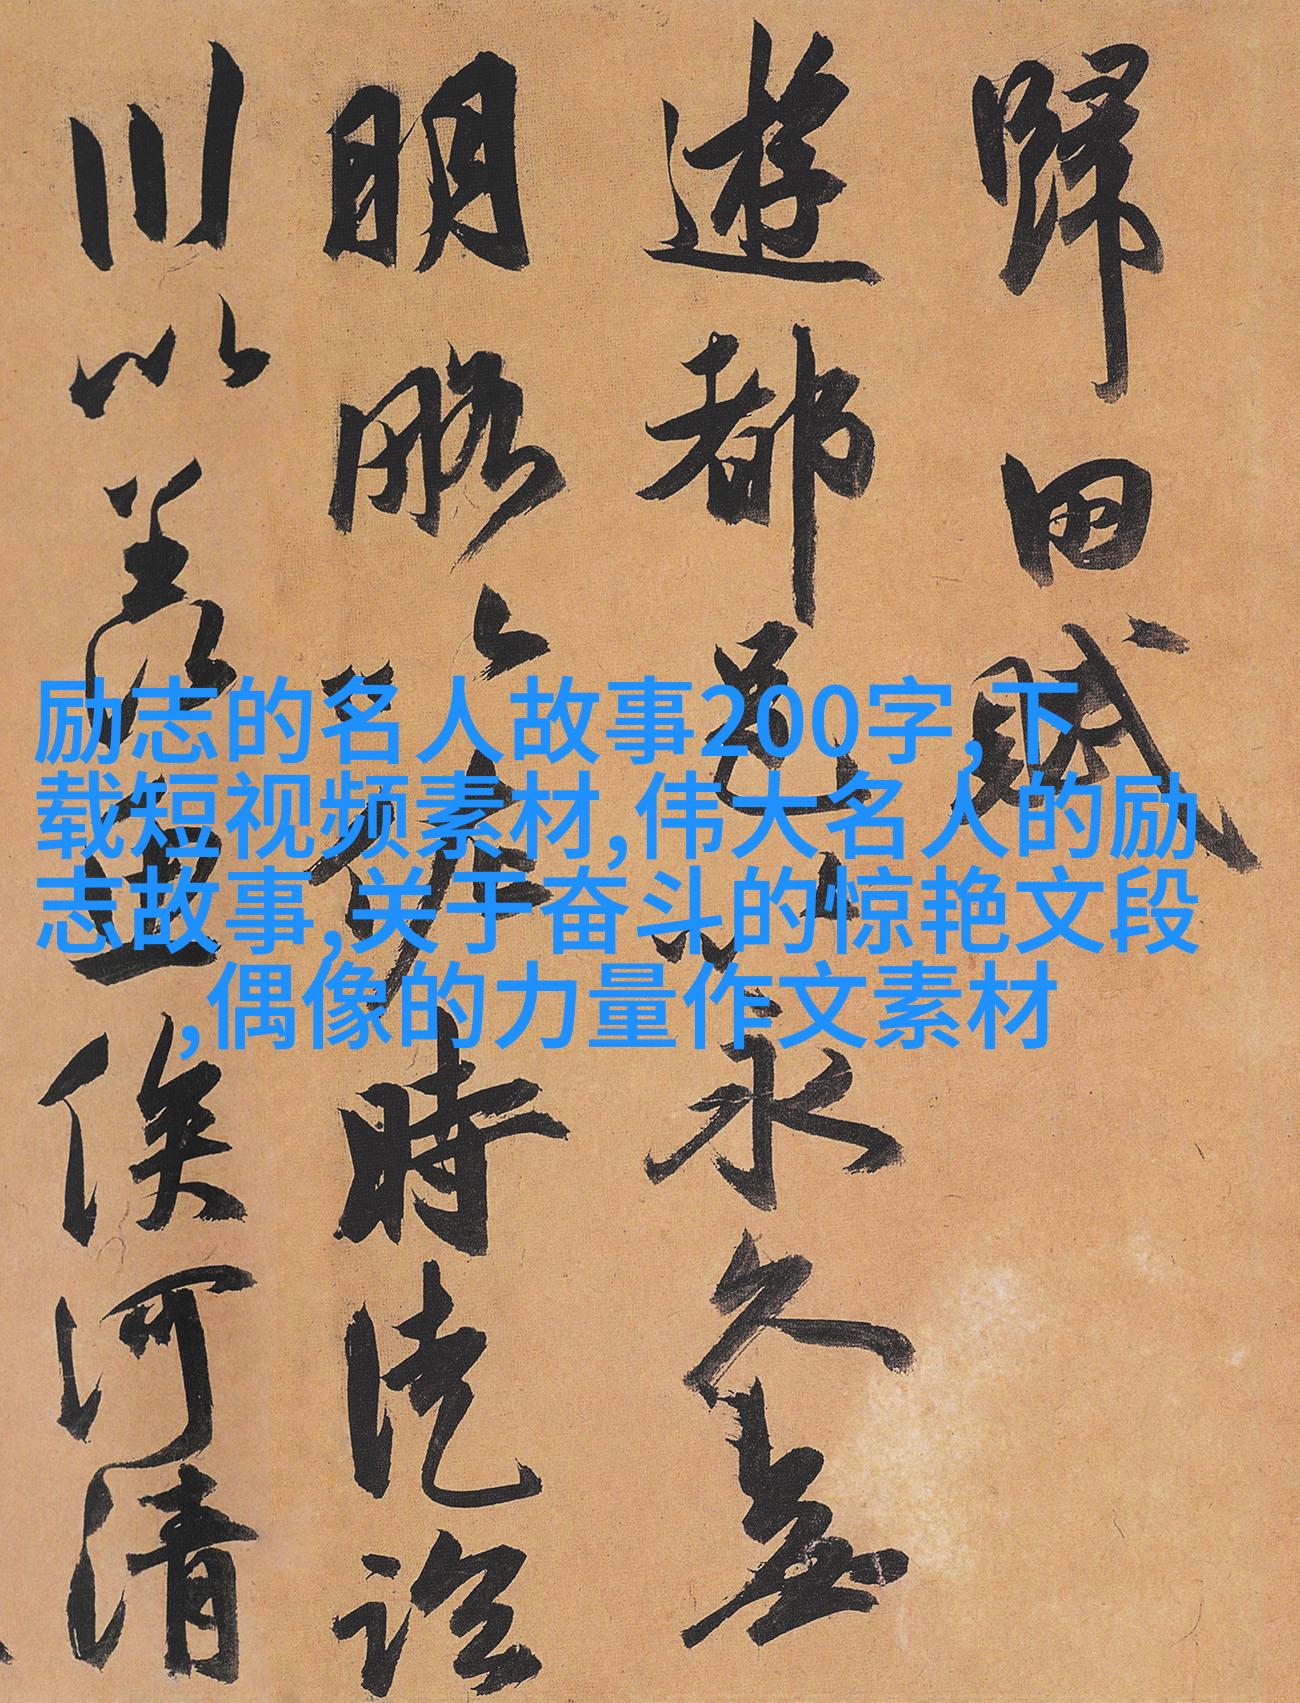 歸田賦
遊都邑以永久無
明略以佐時徒臨
川以羨魚俟河清
励志的名人故事200字,下
载短视频素材,伟大名人的励
志故事,关于奋斗的惊艳文段
,偶像的力量作文素材